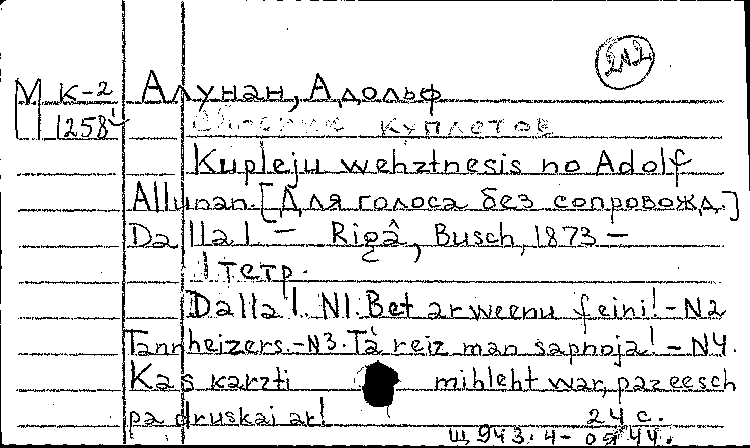 2N2
М К-2 Алунан, Адольф
1258 Сборник куплетов
Kupleju wehztnesis no Adolf
Allunan. [Для голоса без сопровожд.]
Dalla 1 — Rigâ, Busch, 1873 —
1 тетр.
Dalla 1. N1. Bet ar weenu feini! - N2
Tannheizers. - N3. Tà reiz man sapnoja! - N4.
Kas karzti mihleht war, pazeesch
pa druskai ar! 24 с.
Щ 943. 4- 44.